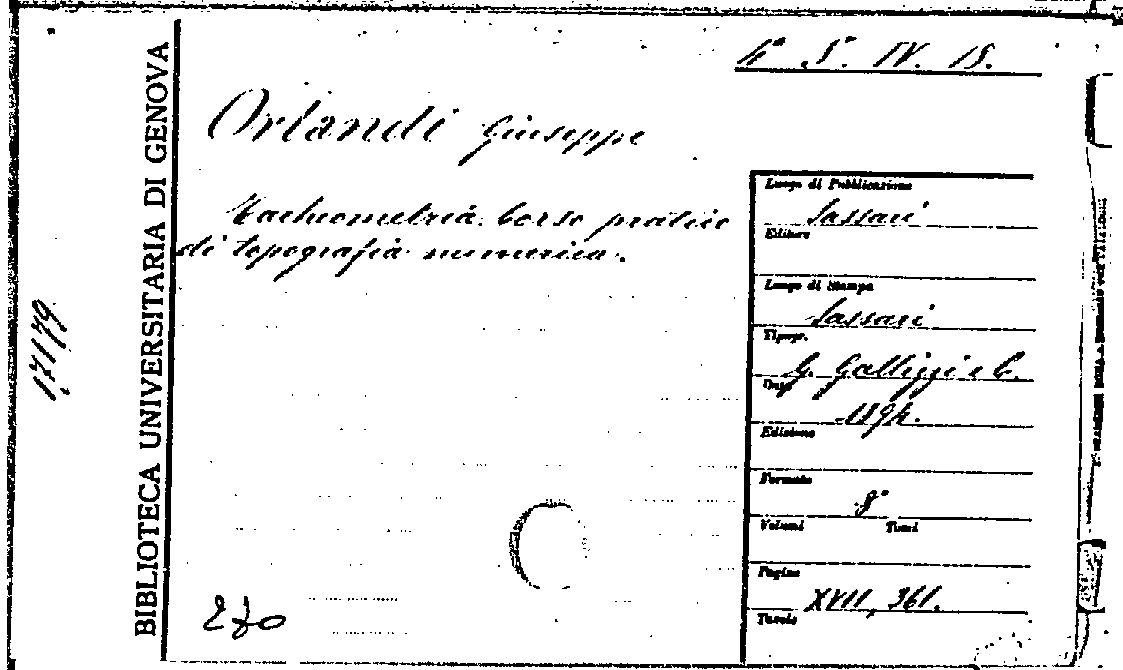 4ª S. IV. 18.
Orlandi Giuseppe
Tacheometria. Corso pratico
di topografia numerica.
BIBLIOTECA UNIVERSITARIA DI GENOVA
17179
Luogo di Pubblicazione
Sassari
Editore
Luogo di Stampa
Sassari
Tipogr.
G. Gallizzi e C.
Data
1894.
Edizione
Formato
8°
Volumi Tomi
Pagine
XVII, 361.
Tavole
270